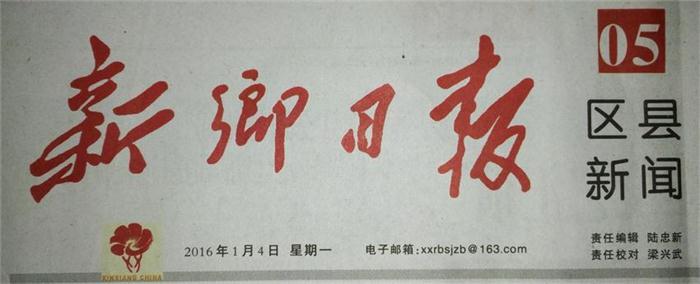 新乡日报
05
区县
新闻
2016年1月4日 星期一 电子邮箱:xxrbsjzb@163.com
责任编辑 陆忠新
责任校对 梁兴武
XINXIANG CHINA